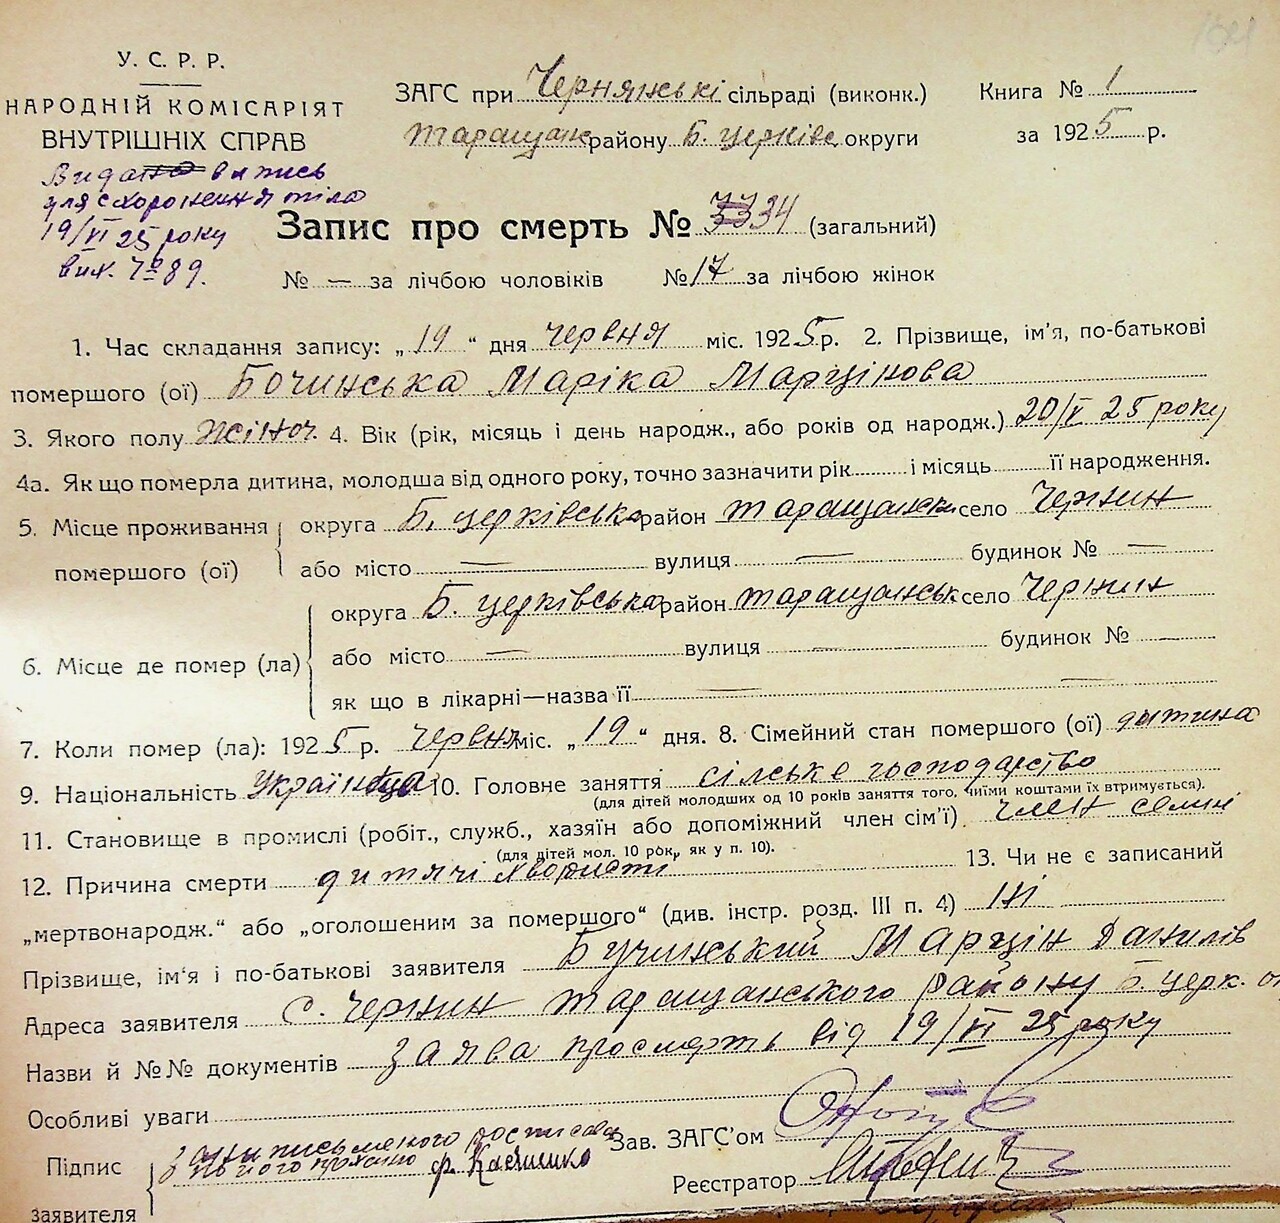 У. С. Р. Р.
НАРОДНІЙ КОМІСАРІЯТ
ВНУТРІШНІХ СПРАВ
Видано випись
для схоронення тіла
19/VI 25 року
вих. № 89.
ЗАГС при Чернянські сільраді (виконк.)
таращанс району Б. церківс округи
Книга № 1
за 1925 р.
Запис про смерть № 34 (загальний)
№ — за лічбою чоловіків № 17 за лічбою жінок
1. Час складання запису: „19“ дня червня міс. 1925 р. 2. Прізвище, ім'я, по-батькові
помершого (ої) Бочинська Маріка Марцінова
3. Якого полу жіноч. 4. Вік (рік, місяць і день народж., або років од народж.) 20/V 25 року
4а. Як що померла дитина, молодша від одного року, точно зазначити рік і місяць її народження.
5. Місце проживання помершого (ої) округа Б. церківська район таращанськ село Чернин
або місто — вулиця — будинок № —
6. Місце де помер (ла) округа Б. церківська район таращанськ село Чернин
або місто — вулиця — будинок № —
як що в лікарні—назва її — —
7. Коли помер (ла): 1925 р. червня міс. „19“ дня. 8. Сімейний стан помершого (ої) дитина
9. Національність Українца 10. Головне заняття сілське господарство
(для дітей молодших од 10 років заняття того, чиїми коштами їх втримується).
11. Становище в промислі (робіт., служб., хазяїн або допоміжний член сім'ї) член семиї
(для дітей мол. 10 рок, як у п. 10).
12. Причина смерти дитячі хвористи 13. Чи не є записаний
„мертвонародж.“ або „оголошеним за помершого“ (див. інстр. розд. III п. 4) ні
Прізвище, ім'я і по-батькові заявителя Бучинський Марцін Данилів
Адреса заявителя с. Чернин таращанского району Б. церк.
Назви й №№ документів заява просмерть від 19/VI 25 року
Особливі уваги
Підпис заявителя за неписьменого росписався
по його проханю
Зав. ЗАГС'ом
Реєстратор